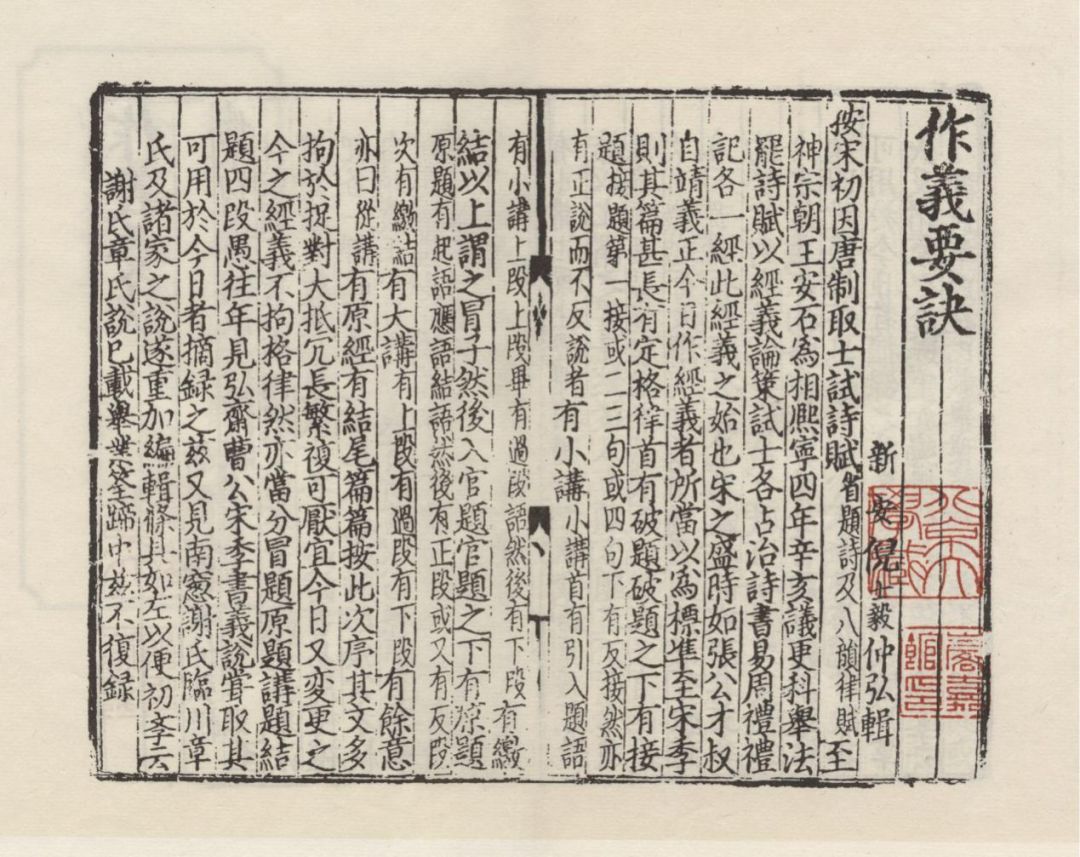 作義要訣
新安倪士毅仲弘輯
按宋初因唐制取士試詩賦省題詩及八韻律賦至
神宗朝王安石為相熙寧四年辛亥議更科舉法
罷詩賦以經義論策試士各占治詩書易周禮禮
記各一經此經義之始也宋之盛時如張公才叔
自靖義正今日作經義者所當以為標準至宋季
則其篇甚長有定格律首有破題破題之下有接
題接題第一接或二三句或四句下有反接然亦
有正說而不反說者有小講小講首有引入題語
有小講上段上段畢有過段語然後有下段有繳
結以上謂之冒子然後入官題官題之下有原題
原題有起語應語結語然後有正段或又有反段
次有繳結有大講有上段有過段有下段有餘意
亦曰從講有原經有結尾篇篇按此次序其文多
拘於捉對大抵冗長繁複可厭宜今日又變更之
今之經義不拘格律然亦當分冒題原題講題結
題四段愚往年見弘齋曹公宋季書義說甞取其
可用於今日者摘録之茲又見南窻謝氏臨川章
氏及諸家之說遂重加編輯條具如左以便初學云
謝氏章氏說已載舉業筌蹄中茲不復録